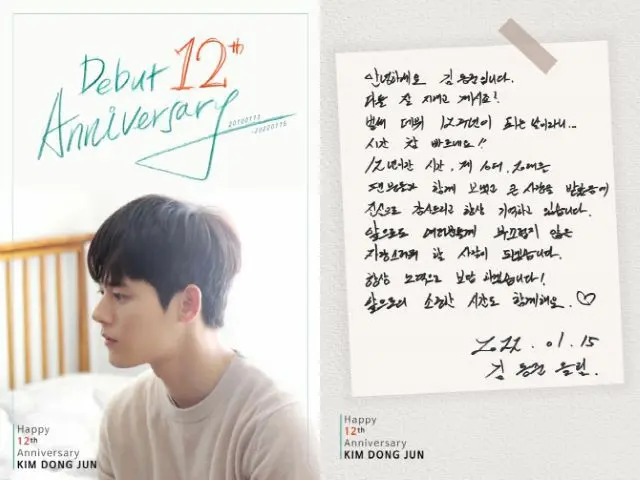 Debut 12th
Anniversary
20100115
-20220115
Happy
12th
Anniversary
KIM DONG JUN
안녕하세요 김동준입니다.
다들 잘 지내고 계시죠?
벌써 데뷔 12주년이 되는 날이라니...
시간 참 빠르네요!!
12년이란 시간, 제 10대, 20대를
팬분들과 함께 보냈고 큰 사랑을 받았음에
진심으로 감사드리고 항상 기억하고 있습니다.
앞으로도 여러분들께 부끄럽지 않은
자랑스러워 할 사람이 되겠습니다.
항상 노력으로 보답 하겠습니다!
앞으로의 소중한 시간도 함께해요. ♡
2022. 01. 15
김동준 올림.
Happy
12th
Anniversary
KIM DONG JUN